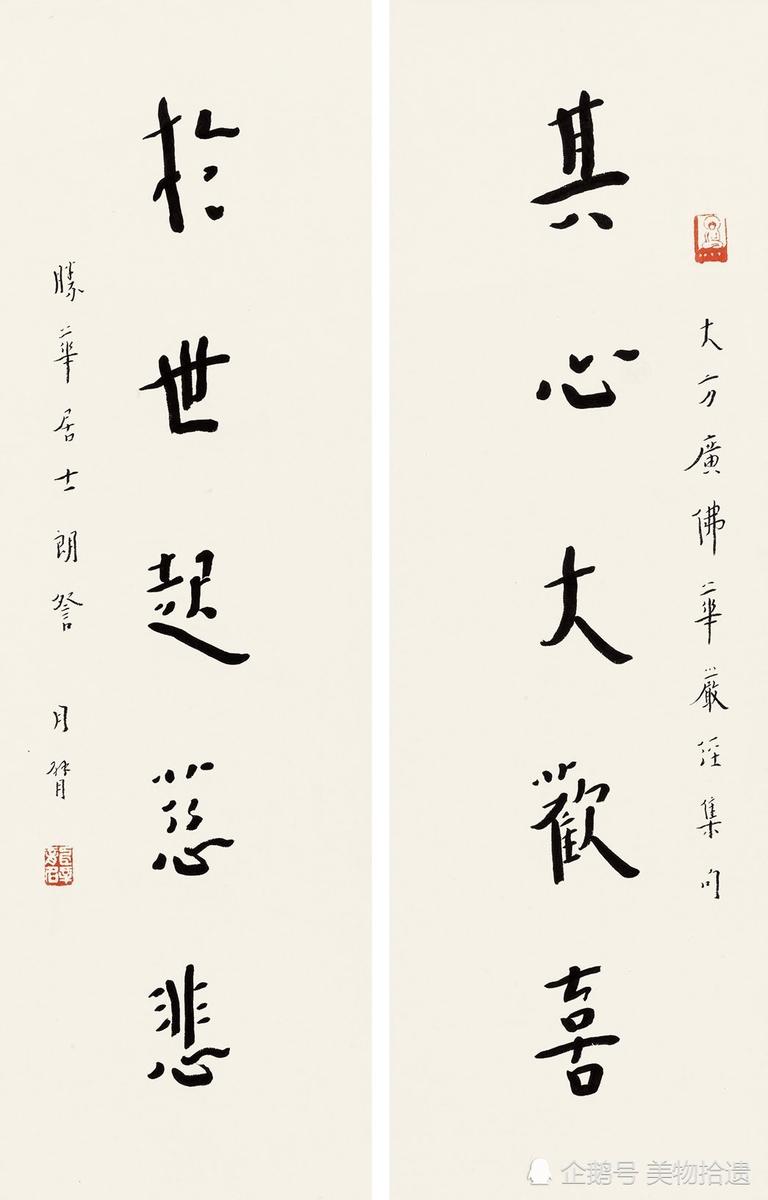 大方廣佛華嚴經集句
其心大歡喜
於世起慈悲
勝華居士朗詧
月臂
企鹅号 美物拾遗